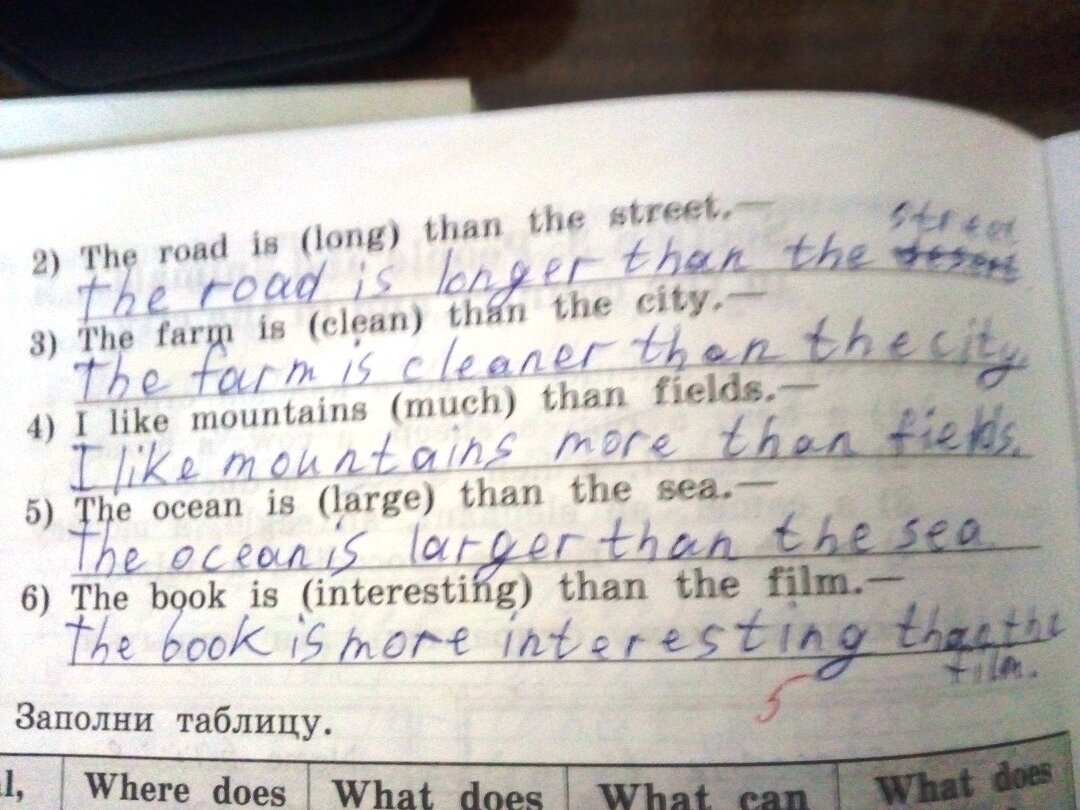 2) The road is (long) than the street.—
street
The road is longer than the
3) The farm is (clean) than the city.—
The farm is cleaner than the city.
4) I like mountains (much) than fields.—
I like mountains more than fields.
5) The ocean is (large) than the sea.—
The ocean is larger than the sea
6) The book is (interesting) than the film.—
The book is more interesting than the
film.
5
Заполни таблицу.
l, Where does What does What can What does